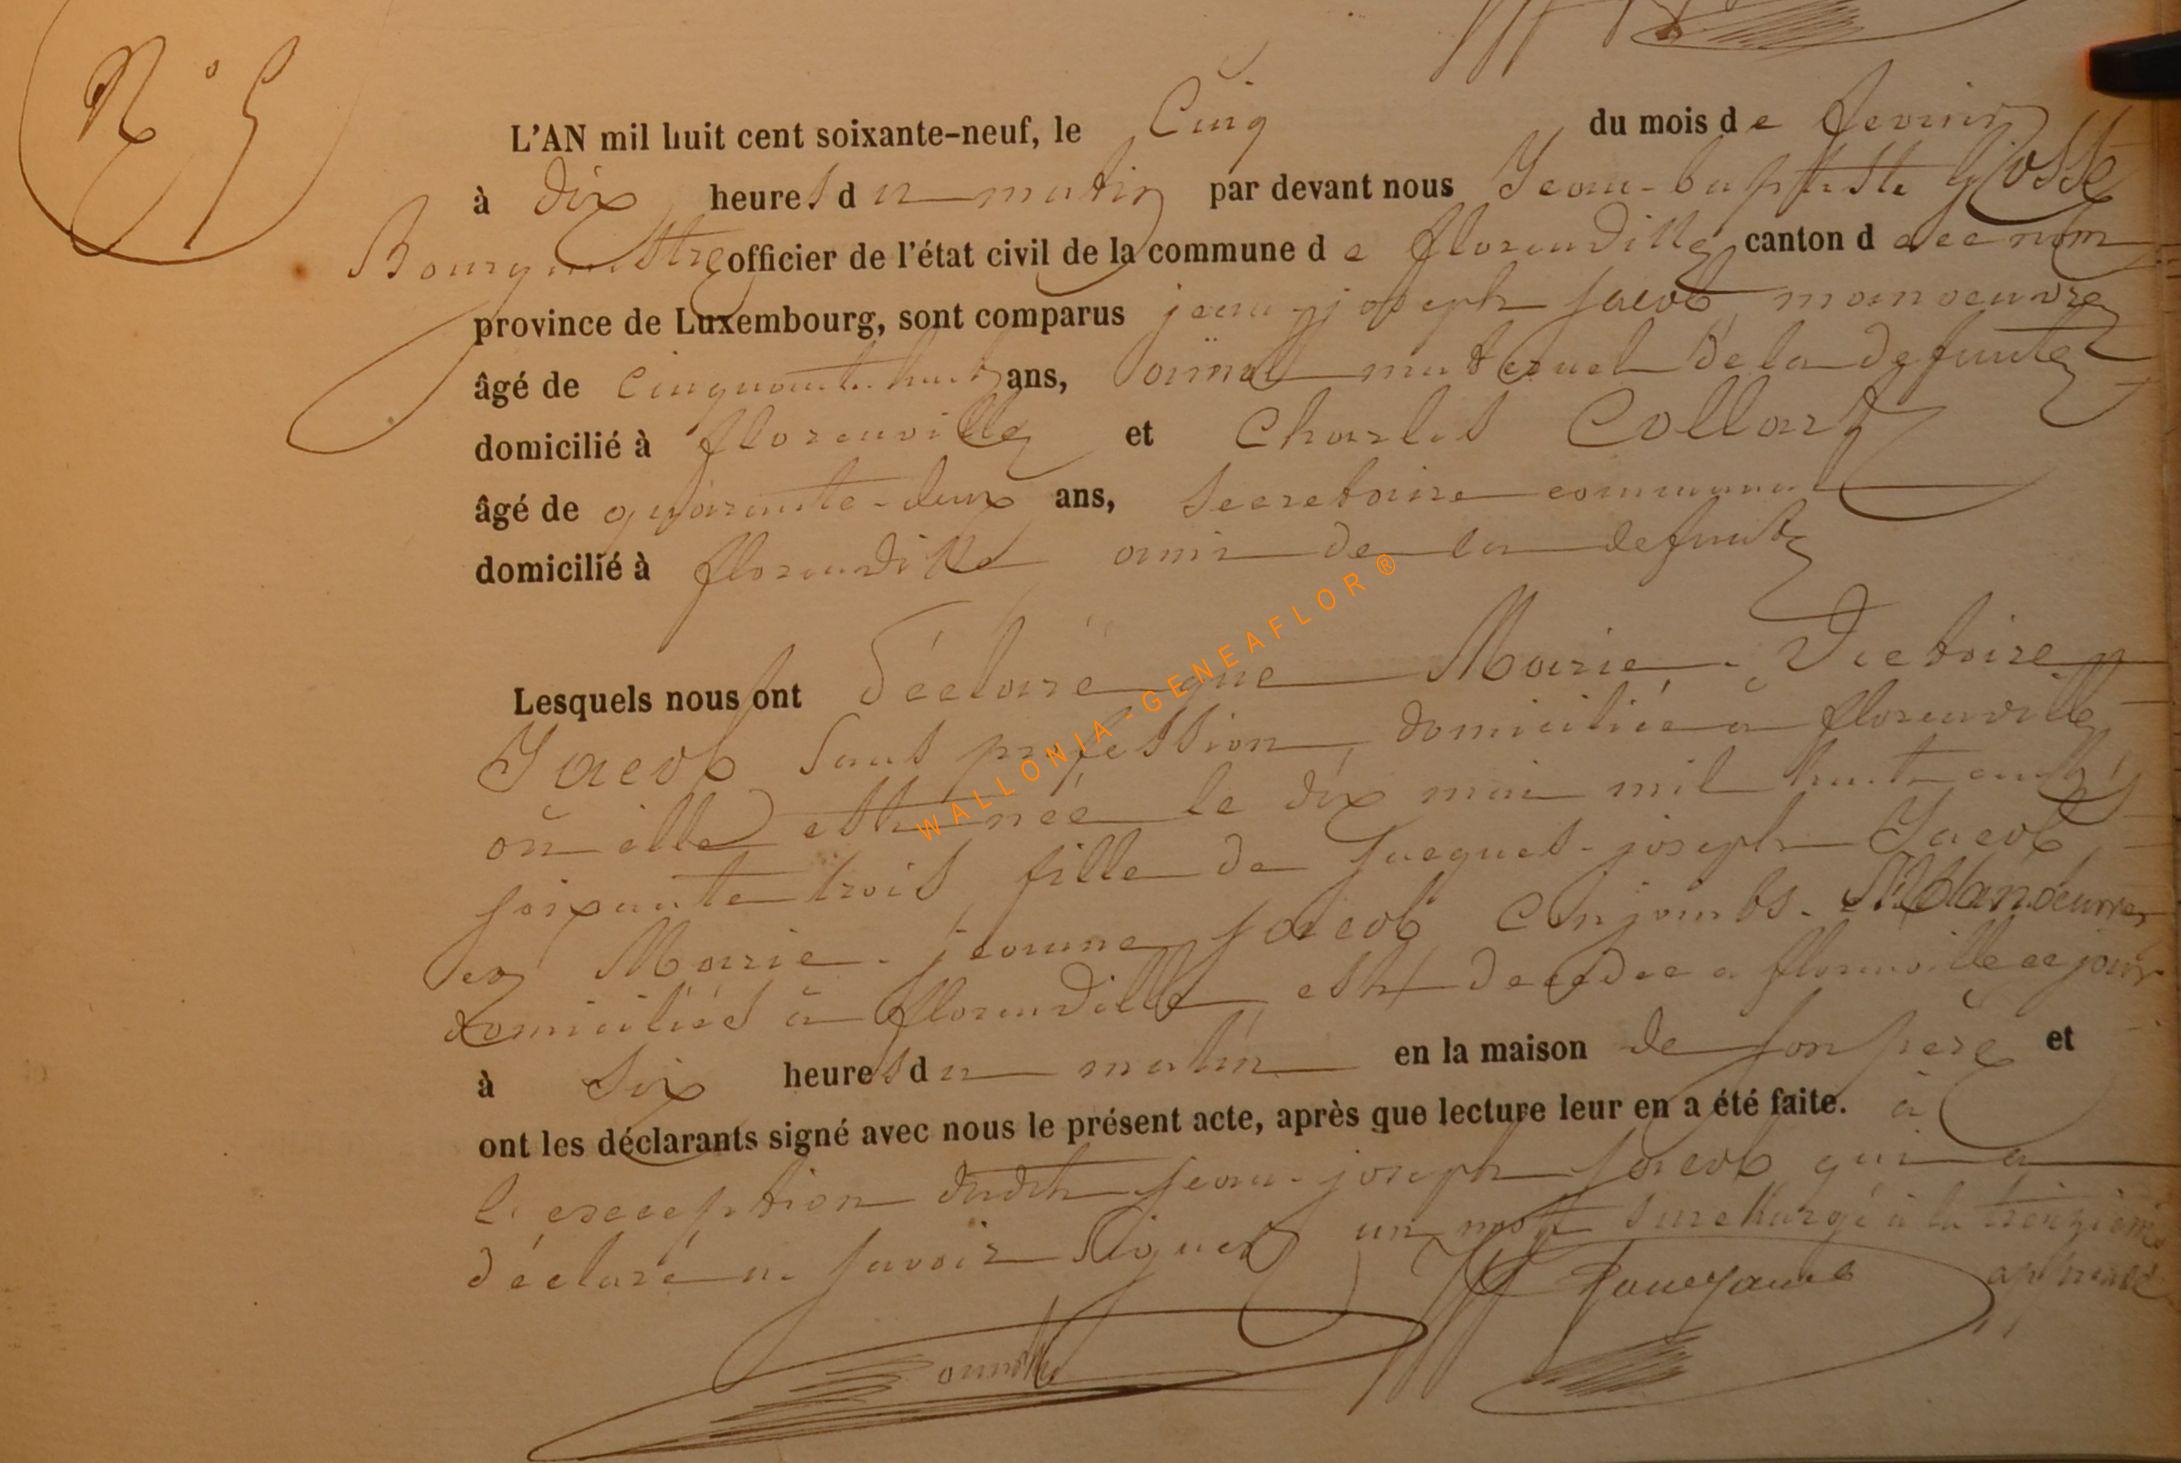 N° 5
L'AN mil huit cent soixante-neuf, le Cinq du mois de fevrier
à dix heures du matin par devant nous Jean-baptiste Gosse
Bourgmestre officier de l'état civil de la commune de florenville, canton de ce nom
province de Luxembourg, sont comparus jean-joseph Jacob, manoeuvre
âgé de cinquante huit ans, maternel de la defunte
domicilié à florenville et Charles Collart
âgé de quarante-deux ans, secretaire communal
domicilié à florenville ami de la defunte
Lesquels nous ont déclaré que Marie-Victoire
Jacob sans profession, domiciliée à florenville
où elle est née le dix mai mil huit cent
soixante trois, fille de Jacques-joseph Jacob
et Marie-jeanne Jacob Conjoints. Manoeuvres
domiciliés à florenville, est decedee a florenville ce jour
à six heures du matin en la maison de son père et
ont les déclarants signé avec nous le présent acte, après que lecture leur en a été faite. à
l'exception dudit jean-joseph Jacob qui a
déclaré ne savoir signer un mot surchargé à la treizième
approuvé
WALLONIA-GENEAFLOR®